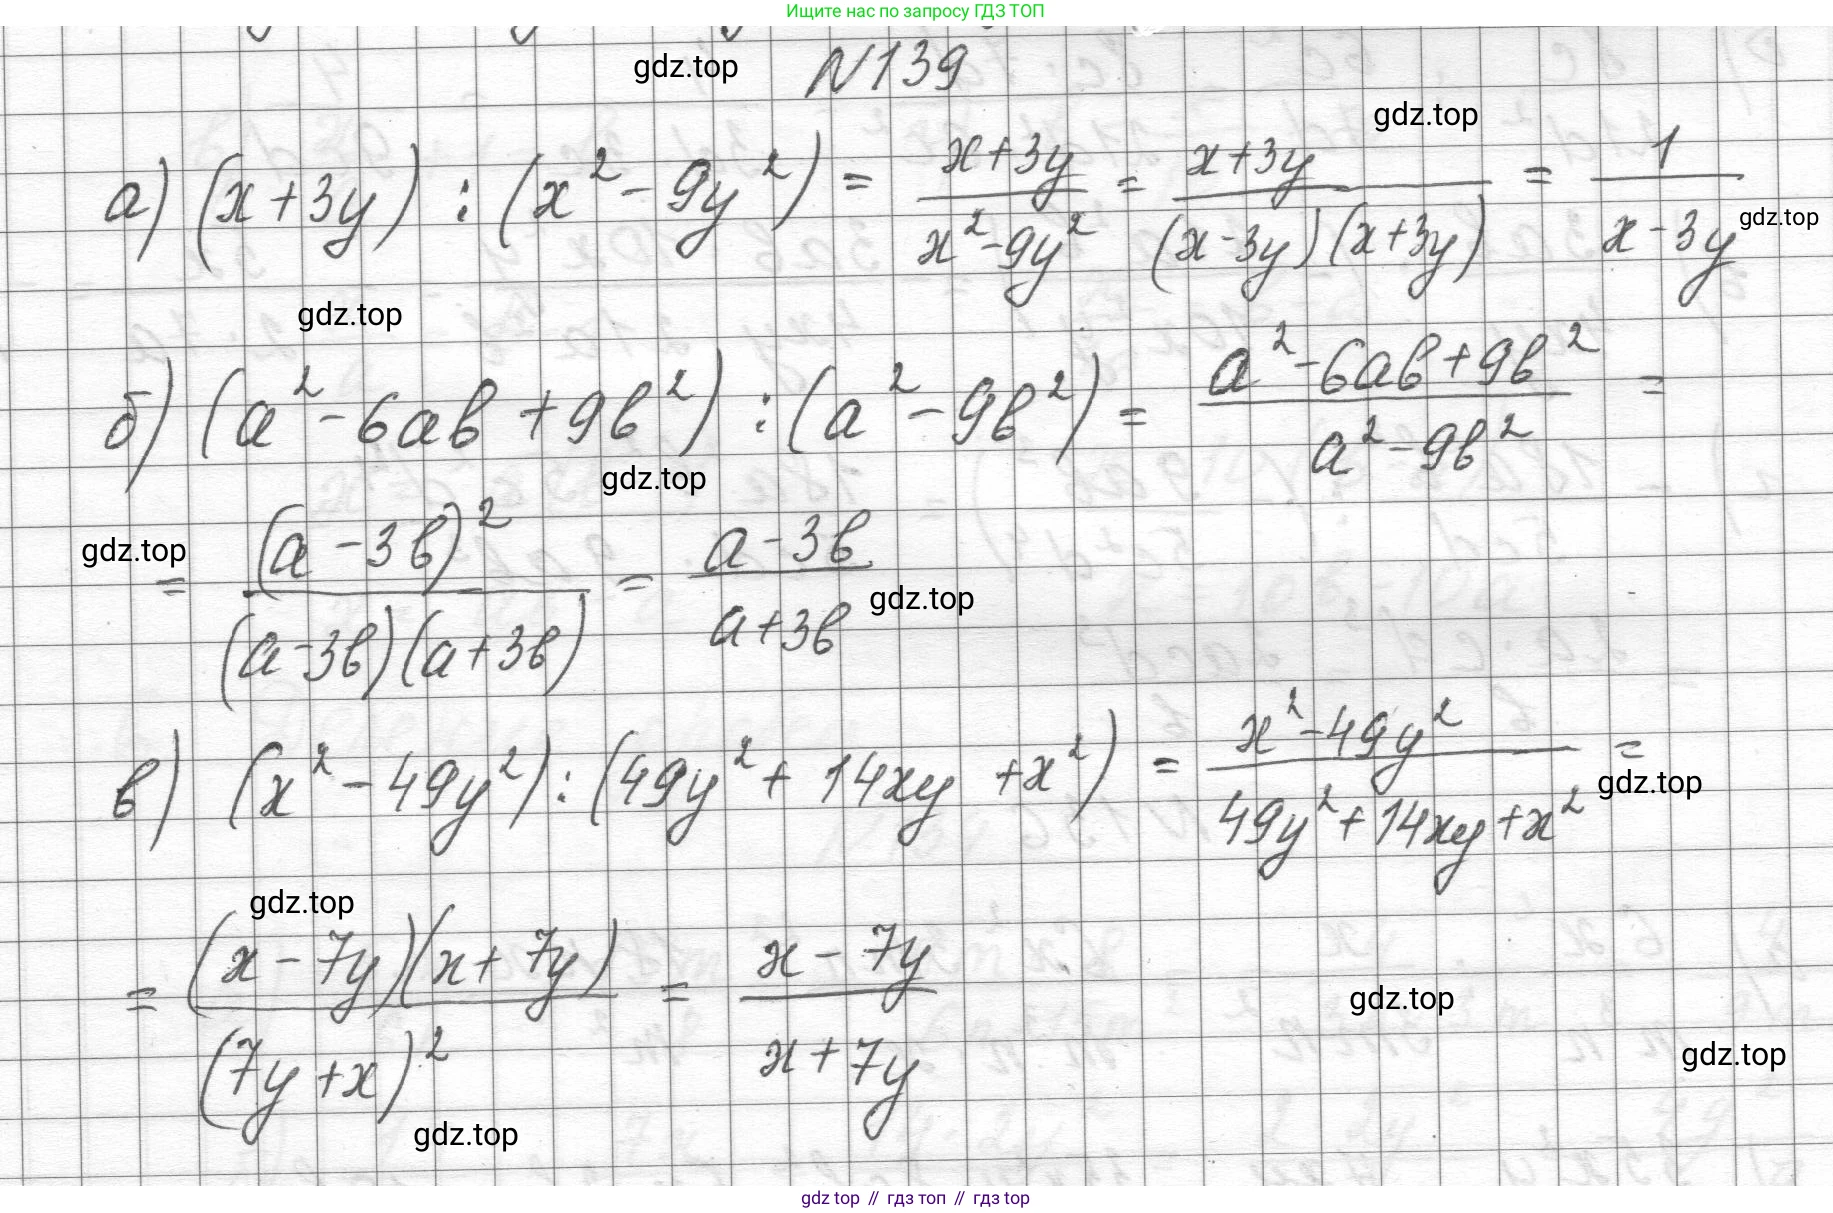 Ищите нас по запросу ГДЗ ТОП
gdz.top №139
gdz.top
а) (x+3y) : (x² - 9y²) = \frac{x+3y}{x²-9y²} = \frac{x+3y}{(x-3y)(x+3y)} = \frac{1}{x-3y}
gdz.top
gdz.top
б) (a² - 6ab + 9b²) : (a² - 9b²) = \frac{a²-6ab+9b²}{a²-9b²} =
gdz.top
gdz.top
= \frac{(a-3b)²}{(a-3b)(a+3b)} = \frac{a-3b}{a+3b}
gdz.top
в) (x² - 49y²) : (49y² + 14xy + x²) = \frac{x²-49y²}{49y²+14xy+x²} =
gdz.top
gdz.top
= \frac{(x-7y)(x+7y)}{(7y+x)²} = \frac{x-7y}{x+7y}
gdz.top
gdz.top
gdz.top
gdz top // гдз топ // гдз top